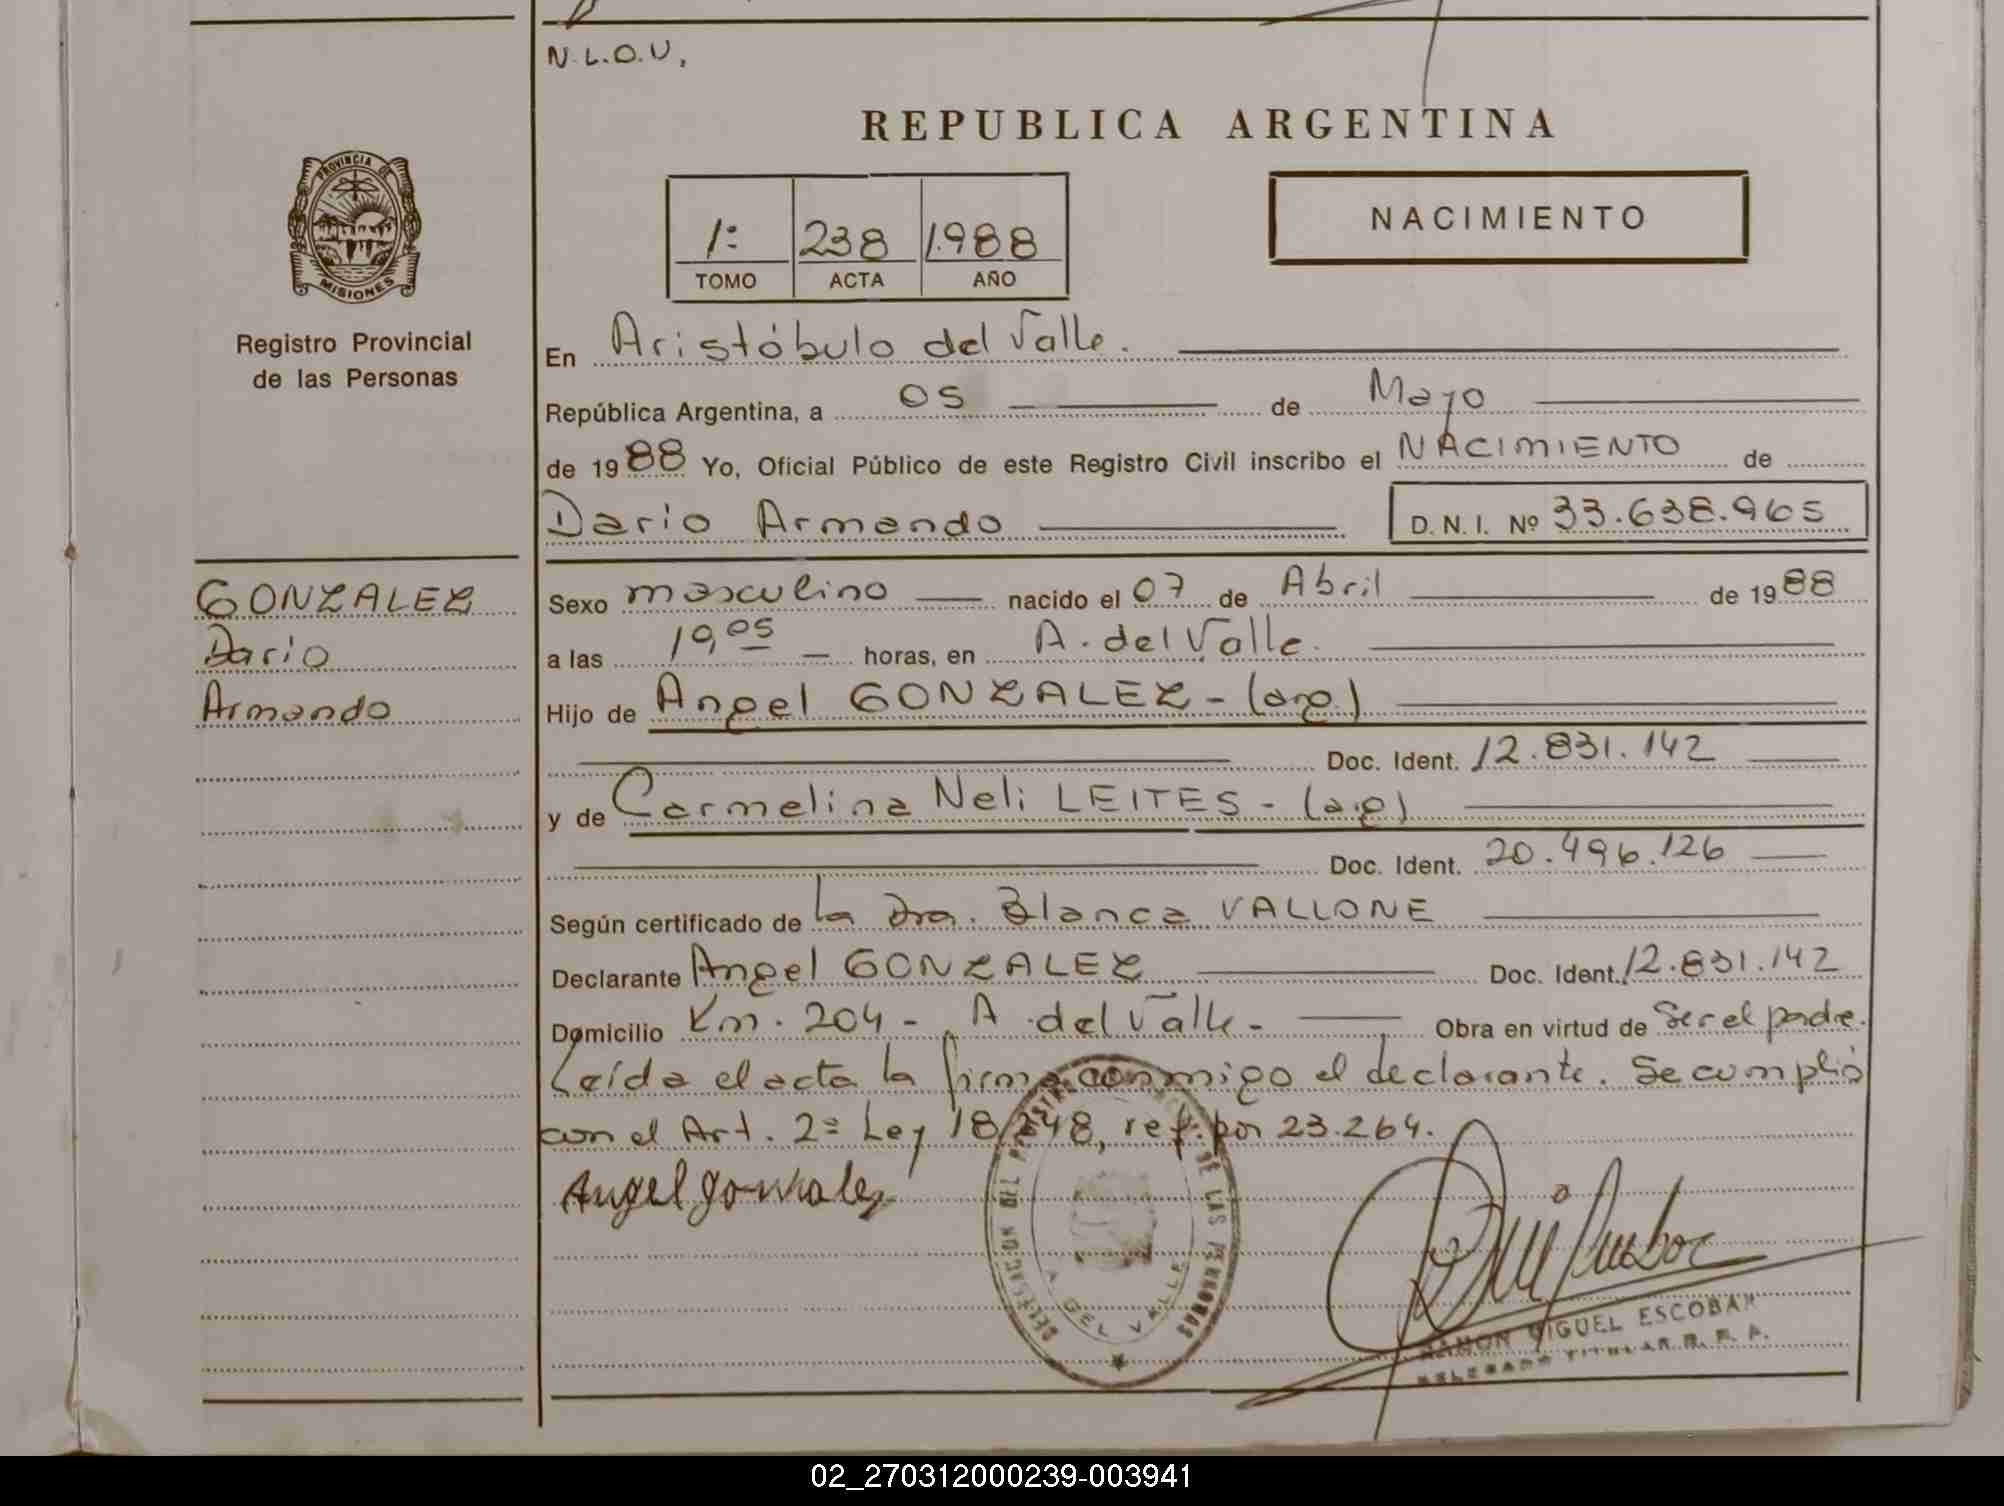 N.L.O.U,
REPUBLICA ARGENTINA
PROVINCIA DE
MISIONES
1: 238 1.988
TOMO ACTA AÑO
NACIMIENTO
Registro Provincial
de las Personas
En Aristóbulo del Valle.
República Argentina, a 05 de Mayo
de 1988 Yo, Oficial Público de este Registro Civil inscribo el NACIMIENTO de
Dario Armando D. N. I. Nº 33.638.965
GONZALEZ
Dario
Armando
Sexo masculino nacido el 07 de Abril de 1988
a las 19,05 horas, en A. del Valle.
Hijo de Angel GONZALEZ - (arg)
Doc. Ident. 12.831.142
y de Carmelina Neli LEITES - (arg)
Doc. Ident. 20.496.126
Según certificado de la Dra. Blanca VALLONE
Declarante Angel GONZALEZ Doc. Ident. 12.831.142
Domicilio Km. 204 - A. del Valle - Obra en virtud de Ser el padre.
Leída el acta la firma conmigo el declarante. Se cumplió
con el Art. 2º Ley 18.248, ref. por 23.264.
Angel gonzalez
DELEGACION DEL REGISTRO DE LAS PERSONAS
A. DEL VALLE
RAMON MIGUEL ESCOBAR
DELEGADO TITULAR R. P. P.
02_270312000239-003941